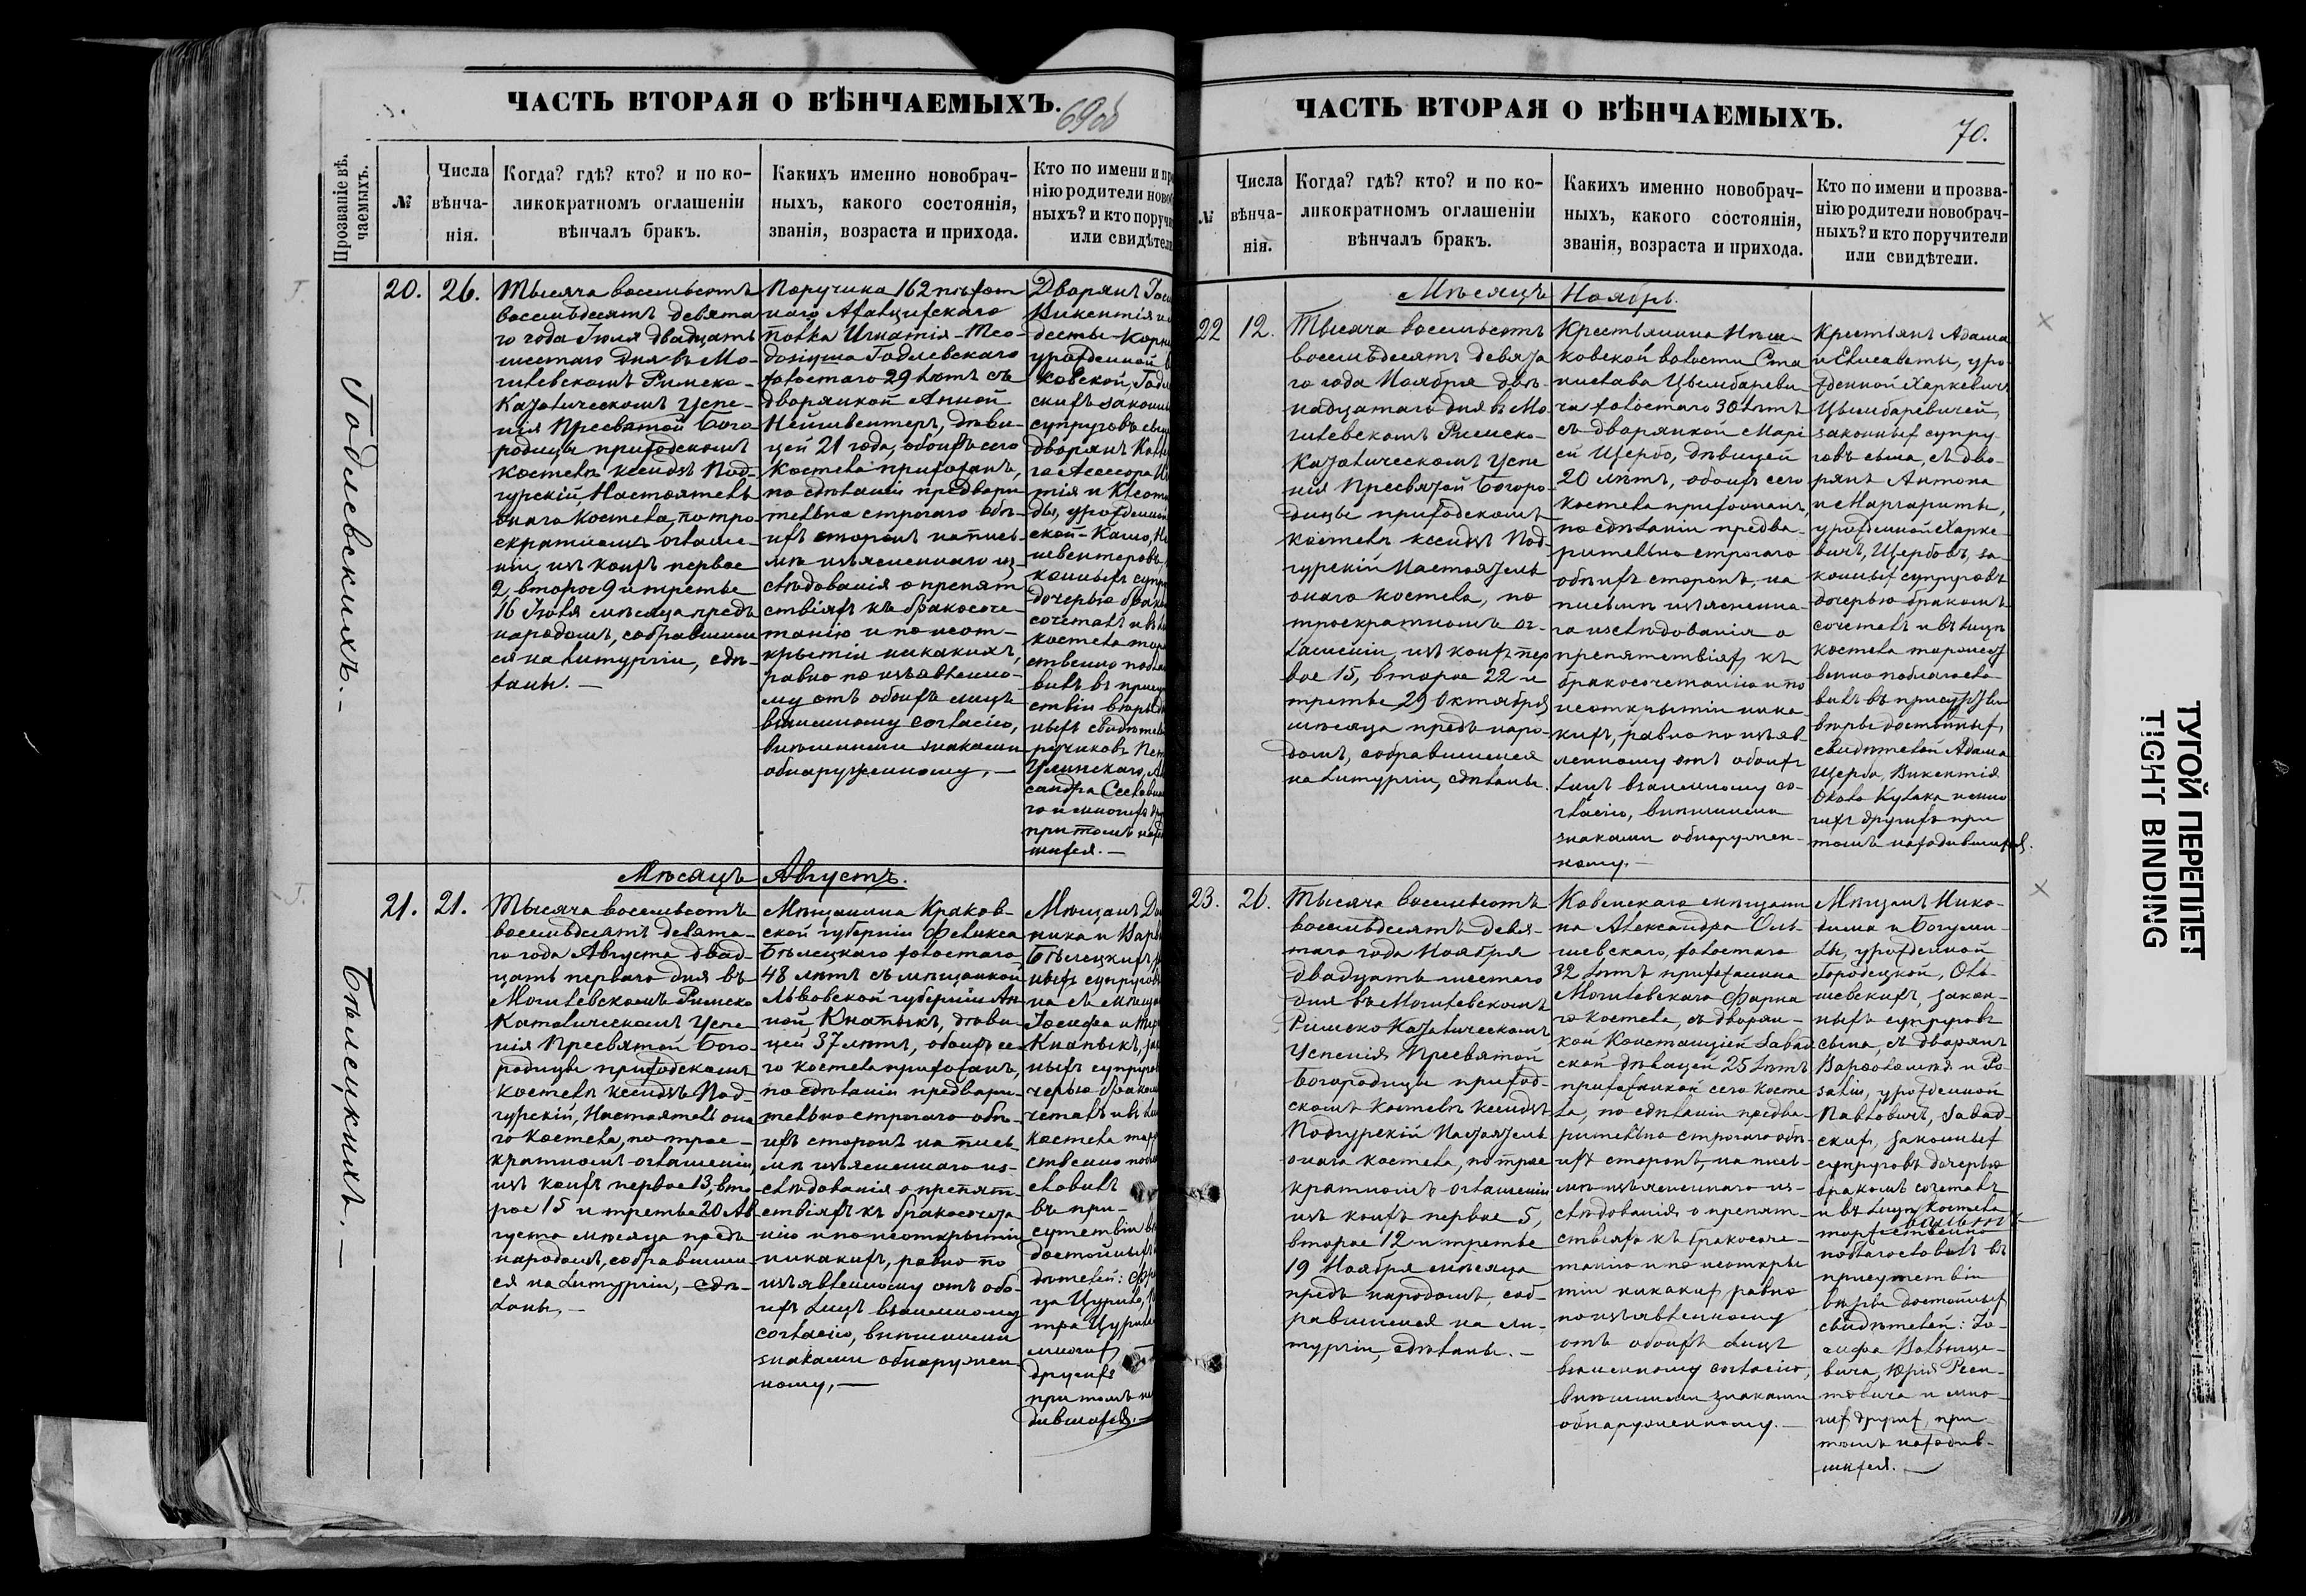 ЧАСТЬ ВТОРАЯ О ВѢНЧАЕМЫХЪ.
69об
Прозваніе вѣ.
чаемыхъ.
№
Числа
вѣнча-
нія.
Когда? гдѣ? кто? и по ко-
ликократномъ оглашеніи
вѣнчалъ бракъ.
Какихъ именно новобрач-
ныхъ, какого состоянія,
званія, возраста и прихода.
Кто по имени и пр
нію родители новоб
ныхъ? и кто поручи
или свидѣтели
Годлевскихъ.-
20.
26.
Тысяча восемьсотъ
восемьдесятъ девята
го года Іюля двадцать
шестаго дня въ Мо-
гилевскомъ Римско-
Католическомъ Успе-
нія Пресвятой Бого
родицы приходскомъ
костелѣ ксендзъ Под-
гурскій Настоятель
онаго костела, по тро-
екратномъ оглаше-
ніи, изъ коихъ первое
2, второе 9 и третье
16 Іюля мѣсяца предъ
народомъ, собравшим
ся на литургіи, сдѣ-
ланы. —
Поручика 162 пѣхот
наго Ахалцихскаго
полка Игнатія-Тео-
дозіуша Годлевскаго
холостаго 29 лѣтъ съ
дворянкой Анной
Нейшвентеръ, дѣви-
цей 21 года, обоихъ сего
костела прихожанъ,
по сдѣланіи предвари
тельно строгаго обѣ-
ихъ сторонъ на пись-
мѣ изъясненнаго из-
слѣдованія о препят
ствіяхъ къ бракосоче-
танію и по неот-
крытіи никакихъ,
равно по изъявленно-
му отъ обоихъ лицъ
взаимному согласію,
внѣшними знаками
обнаруженному, —
Дворянъ
Викентія и
урожденной
ковской,
скихъ законн
супруговъ сына
дворянъ
га Асессора
тія и
ды, урожденной
ской-
швентеровъ,
конныхъ супр
дочерью брак
сочеталъ и въ
костела торж
ственно побла
вилъ въ присут
ствіи
ныхъ свидѣтел
ручиковъ
сандра
го и многихъ др
при томъ нахо
шихся. —
Мѣсяцъ Августъ.
Бѣлецкихъ.—
21.
21.
Тысяча восемьсотъ
восемьдесятъ девята-
го года Августа двад-
цать перваго дня въ
Могилевскомъ Римско
Католическомъ Успе-
нія Пресвятой Бого-
родицы приходскомъ
костелѣ ксендзъ Под-
гурскій, Настоятель она
го костела, по трое-
кратномъ оглашеніи,
изъ коихъ первое 13, вто
рое 15 и третье 20 Ав
густа мѣсяца предъ
народомъ, собравшим-
ся на литургіи, — сдѣ-
ланы, —
Мѣщанина Краков-
ской губерніи Феликса
Бѣлецкаго холостаго
48 лѣтъ съ мѣщанкой
Львовской губерніи Ан-
ной Кнапыкъ, дѣви-
цей 37 лѣтъ, обоихъ се-
го костела прихожанъ,
по сдѣланіи предвари-
тельно строгаго обѣ-
ихъ сторонъ на пись
мѣ изъясненнаго из-
слѣдованія о препят-
ствіяхъ къ бракосочета
нію и по неоткрытіи
никакихъ, равно по
изъявленному отъ обо-
ихъ лицъ взаимному
согласію, внѣшними
знаками обнаружен-
ному, —
Мѣщанъ
ника и Варв
Бѣлецкихъ,
ныхъ супругов
на съ мѣщан
Іосифа и
Кнапыкъ,
ныхъ супругов
черью бракомъ
четалъ и въ
костела торж
ственно побл
словилъ
въ при-
сутствіи
достойныхъ
дѣтелей:
ца Цурило,
тра
многихъ
другихъ
при томъ на
дившихся.—
ЧАСТЬ ВТОРАЯ О ВѢНЧАЕМЫХЪ.
70.
№
Числа
вѣнча-
нія.
Когда? гдѣ? кто? и по ко-
ликократномъ оглашеніи
вѣнчалъ бракъ.
Какихъ именно новобрач-
ныхъ, какого состоянія,
званія, возраста и прихода.
Кто по имени и прозва-
нію родители новобрач-
ныхъ? и кто поручители
или свидѣтели.
Мѣсяцъ Ноябрь.
22
12.
Тысяча восемьсотъ
восемьдесятъ девята
го года Ноября двѣ-
надцатаго дня въ Мо
гилевскомъ Римско-
Католическомъ Успе
нія Пресвятой Богоро-
дицы приходскомъ
костелѣ ксендзъ Под-
гурскій Настоятель
онаго костела, по
троекратномъ ог-
лашеніи, изъ коихъ пер
вое 15, второе 22 и
третье 29 Октября
мѣсяца предъ наро-
домъ, собравшемся
на литургіи, сдѣланы.
Крестьянина
ковской волости Ста
нислава Цымбареви-
ча холостаго 30 лѣтъ
съ дворянкой Марі
ей Щербо, дѣвицей
20 лѣтъ, обоихъ сего
костела прихожанъ,
по сдѣланіи предва-
рительно строгаго
обѣихъ сторонъ, на
письмѣ изъясненна-
го изслѣдованія о
препятствіяхъ къ
бракосочетанію и по
неоткрытіи ника-
кихъ, равно по изъяв-
ленному отъ обоихъ
лицъ взаимному со-
гласію, внѣшними
знаками обнаружен-
ному.—
Крестьянъ Адама
и Елисаветы, уро-
жденной Харкевичъ
Цымбаревичей,
законныхъ супру-
говъ сына, съ дво-
рянъ Антона
и Маргариты,
урожденной Харке-
вичъ, Щербовъ, за-
конныхъ супруговъ
дочерью бракомъ
сочеталъ и въ лицѣ
костела торжест
венно поблагосло-
вилъ въ присутствіи
вѣры достойныхъ
свидѣтелей Адама
Щербо, Викентія
Около Кулака и мно
гихъ другихъ при
томъ находившихся.
23.
26.
Тысяча восемьсотъ
восемьдесятъ девя-
таго года Ноября
двадцать шестаго
дня въ Могилевскомъ
Римско Католическомъ
Успенія Пресвятой
Богородицы приход-
скомъ костелѣ ксендзъ
Подгурскій Настоятель
онаго костела, по трое
кратномъ оглашеніи
изъ коихъ первое 5,
второе 12 и третье
19 Ноября мѣсяца
предъ народомъ, соб-
равшемся на ли-
тургіи, сдѣланы. —
Ковенскаго мѣщани
на Александра Оль-
шевскаго, холостаго
32 лѣтъ прихожанина
Могилевскаго Фарна
го костела, съ дворян-
кой Констанціей Завад
ской дѣвицей 25 лѣтъ
прихожанкой сего косте
ла, по сдѣланіи предва-
рительно строгаго обѣ-
ихъ сторонъ, на пись-
мѣ изъясненнаго из-
слѣдованія о препят-
ствіяхъ къ бракосоче-
танію и по неоткры
тіи никакихъ равно
по изъявленному
отъ обоихъ лицъ
взаимному согласію,
внѣшними знаками
обнаруженному. —
Мѣщанъ Нико-
дима и Богуми-
лы, урожденной
Городецкой, Оль-
шевскихъ, закон-
ныхъ супруговъ
сына, съ дворянъ
Варѳоломѣя и Ро-
заліи, урожденной
Павловичъ, Завад-
скихъ, законныхъ
супруговъ дочерью
бракомъ сочеталъ
и въ лицѣ костела
торжественно
поблагословилъ въ
присутствіи
вѣры достойныхъ
свидѣтелей: Іо-
сифа
вича, Юрія
товича и мно-
гихъ другихъ, при
томъ находив-
шихся. —
ТУГОЙ ПЕРЕПЛЕТ
TIGHT BINDING